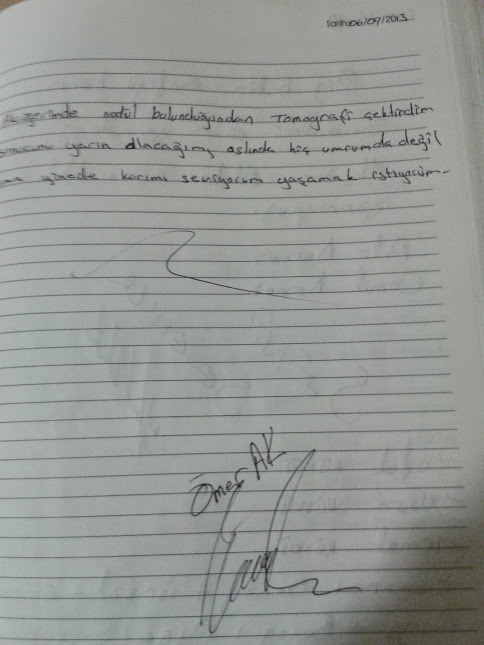 Tarih:06/09/2013...
nodül bulunduğundan Tomografi çektirdim
yarın alacağım, aslında hiç umrumda değil
yinede karımı seviyorum yaşamak istiyorum-
Ömer AK